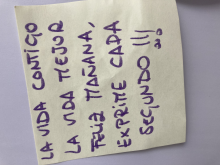 LA VIDA CONTIGO
LA VIDA MEJOR
FELIZ MAÑANA,
EXPRIME CADA
SEGUNDO !!!